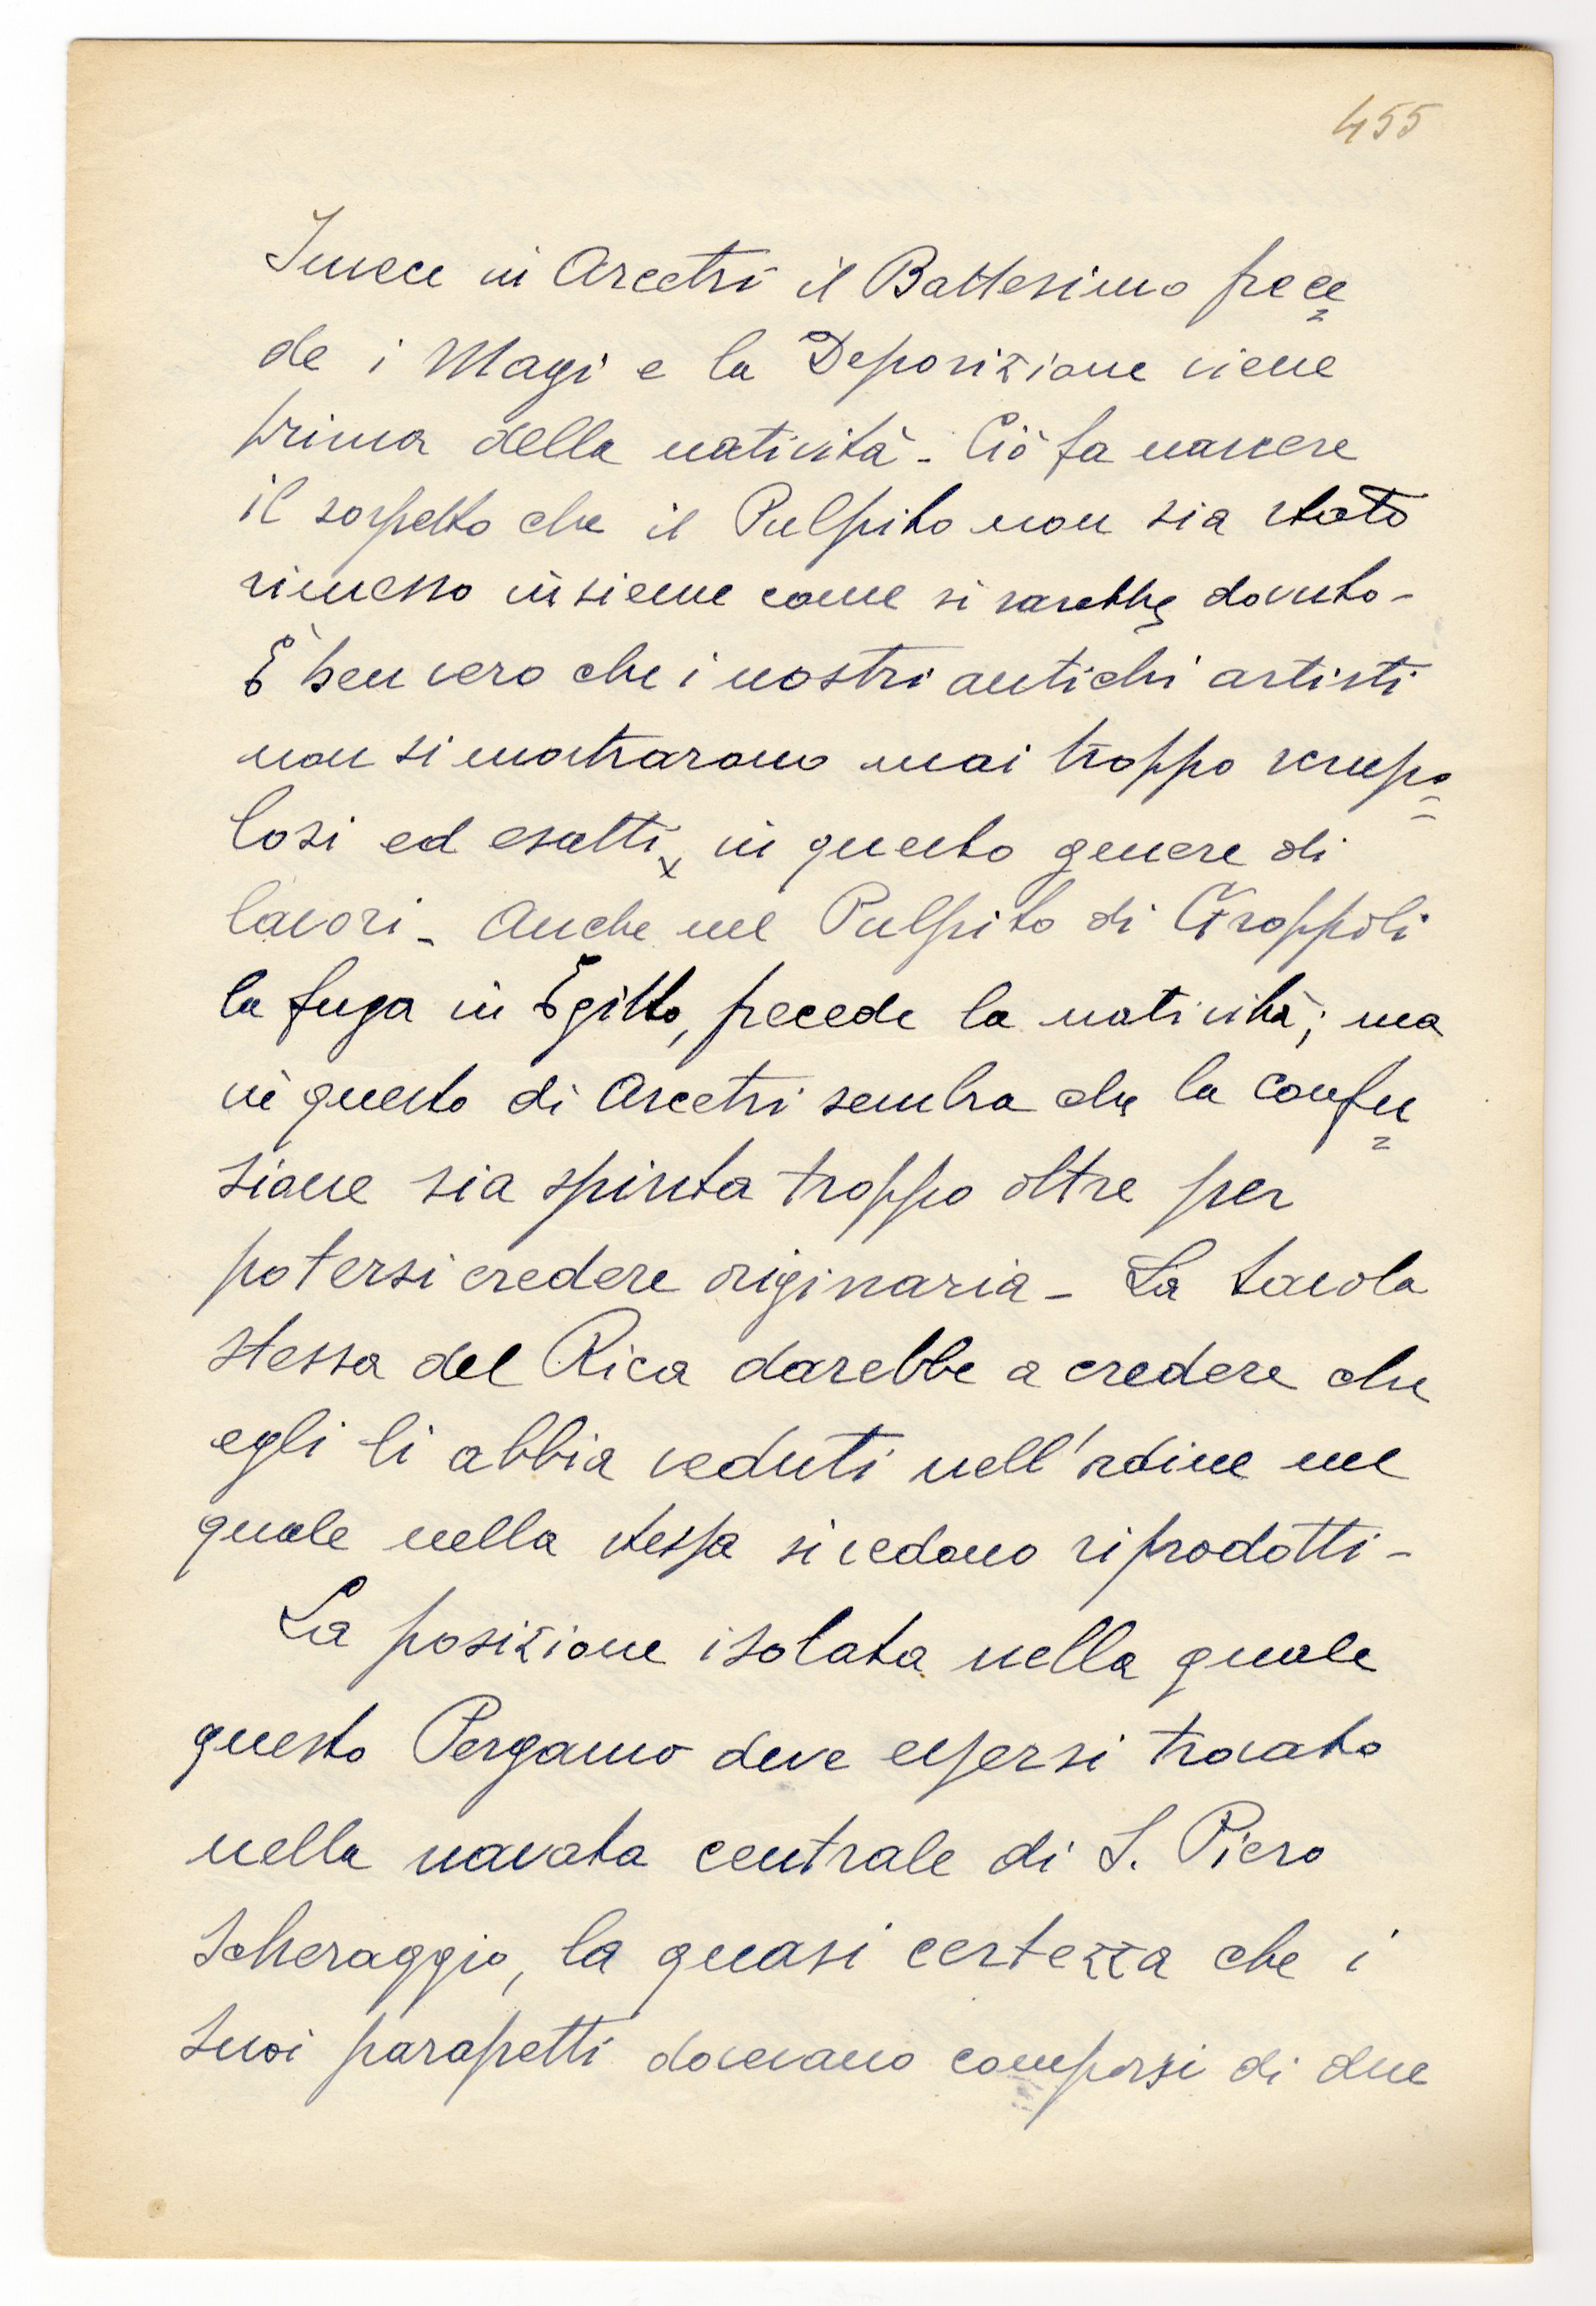 455
Invece in Arcetri il Battesimo prece=
de i Magi e la Deposizione viene
prima della natività - Ciò fa nascere
il sospetto che il Pulpito non sia stato
rimesso insieme come si sarebbe dovuto -
È ben vero che i nostri antichi artisti
non si mostrarono mai troppo scrupo=
losi ed esatti, in questo genere di
lavori - Anche nel Pulpito di Groppoli
la fuga in Egitto, precede la natività; ma
in questo di Arcetri sembra che la confu=
sione sia spinta troppo oltre per
potersi credere originaria - La tavola
stessa del Rica darebbe a credere che
egli li abbia veduti nell'ordine nel
quale nella stessa si vedono riprodotti -
La posizione isolata nella quale
questo Pergamo deve essersi trovato
nella navata centrale di S. Piero
Scheraggio, la quasi certezza che i
suoi parapetti dovevano comporsi di due